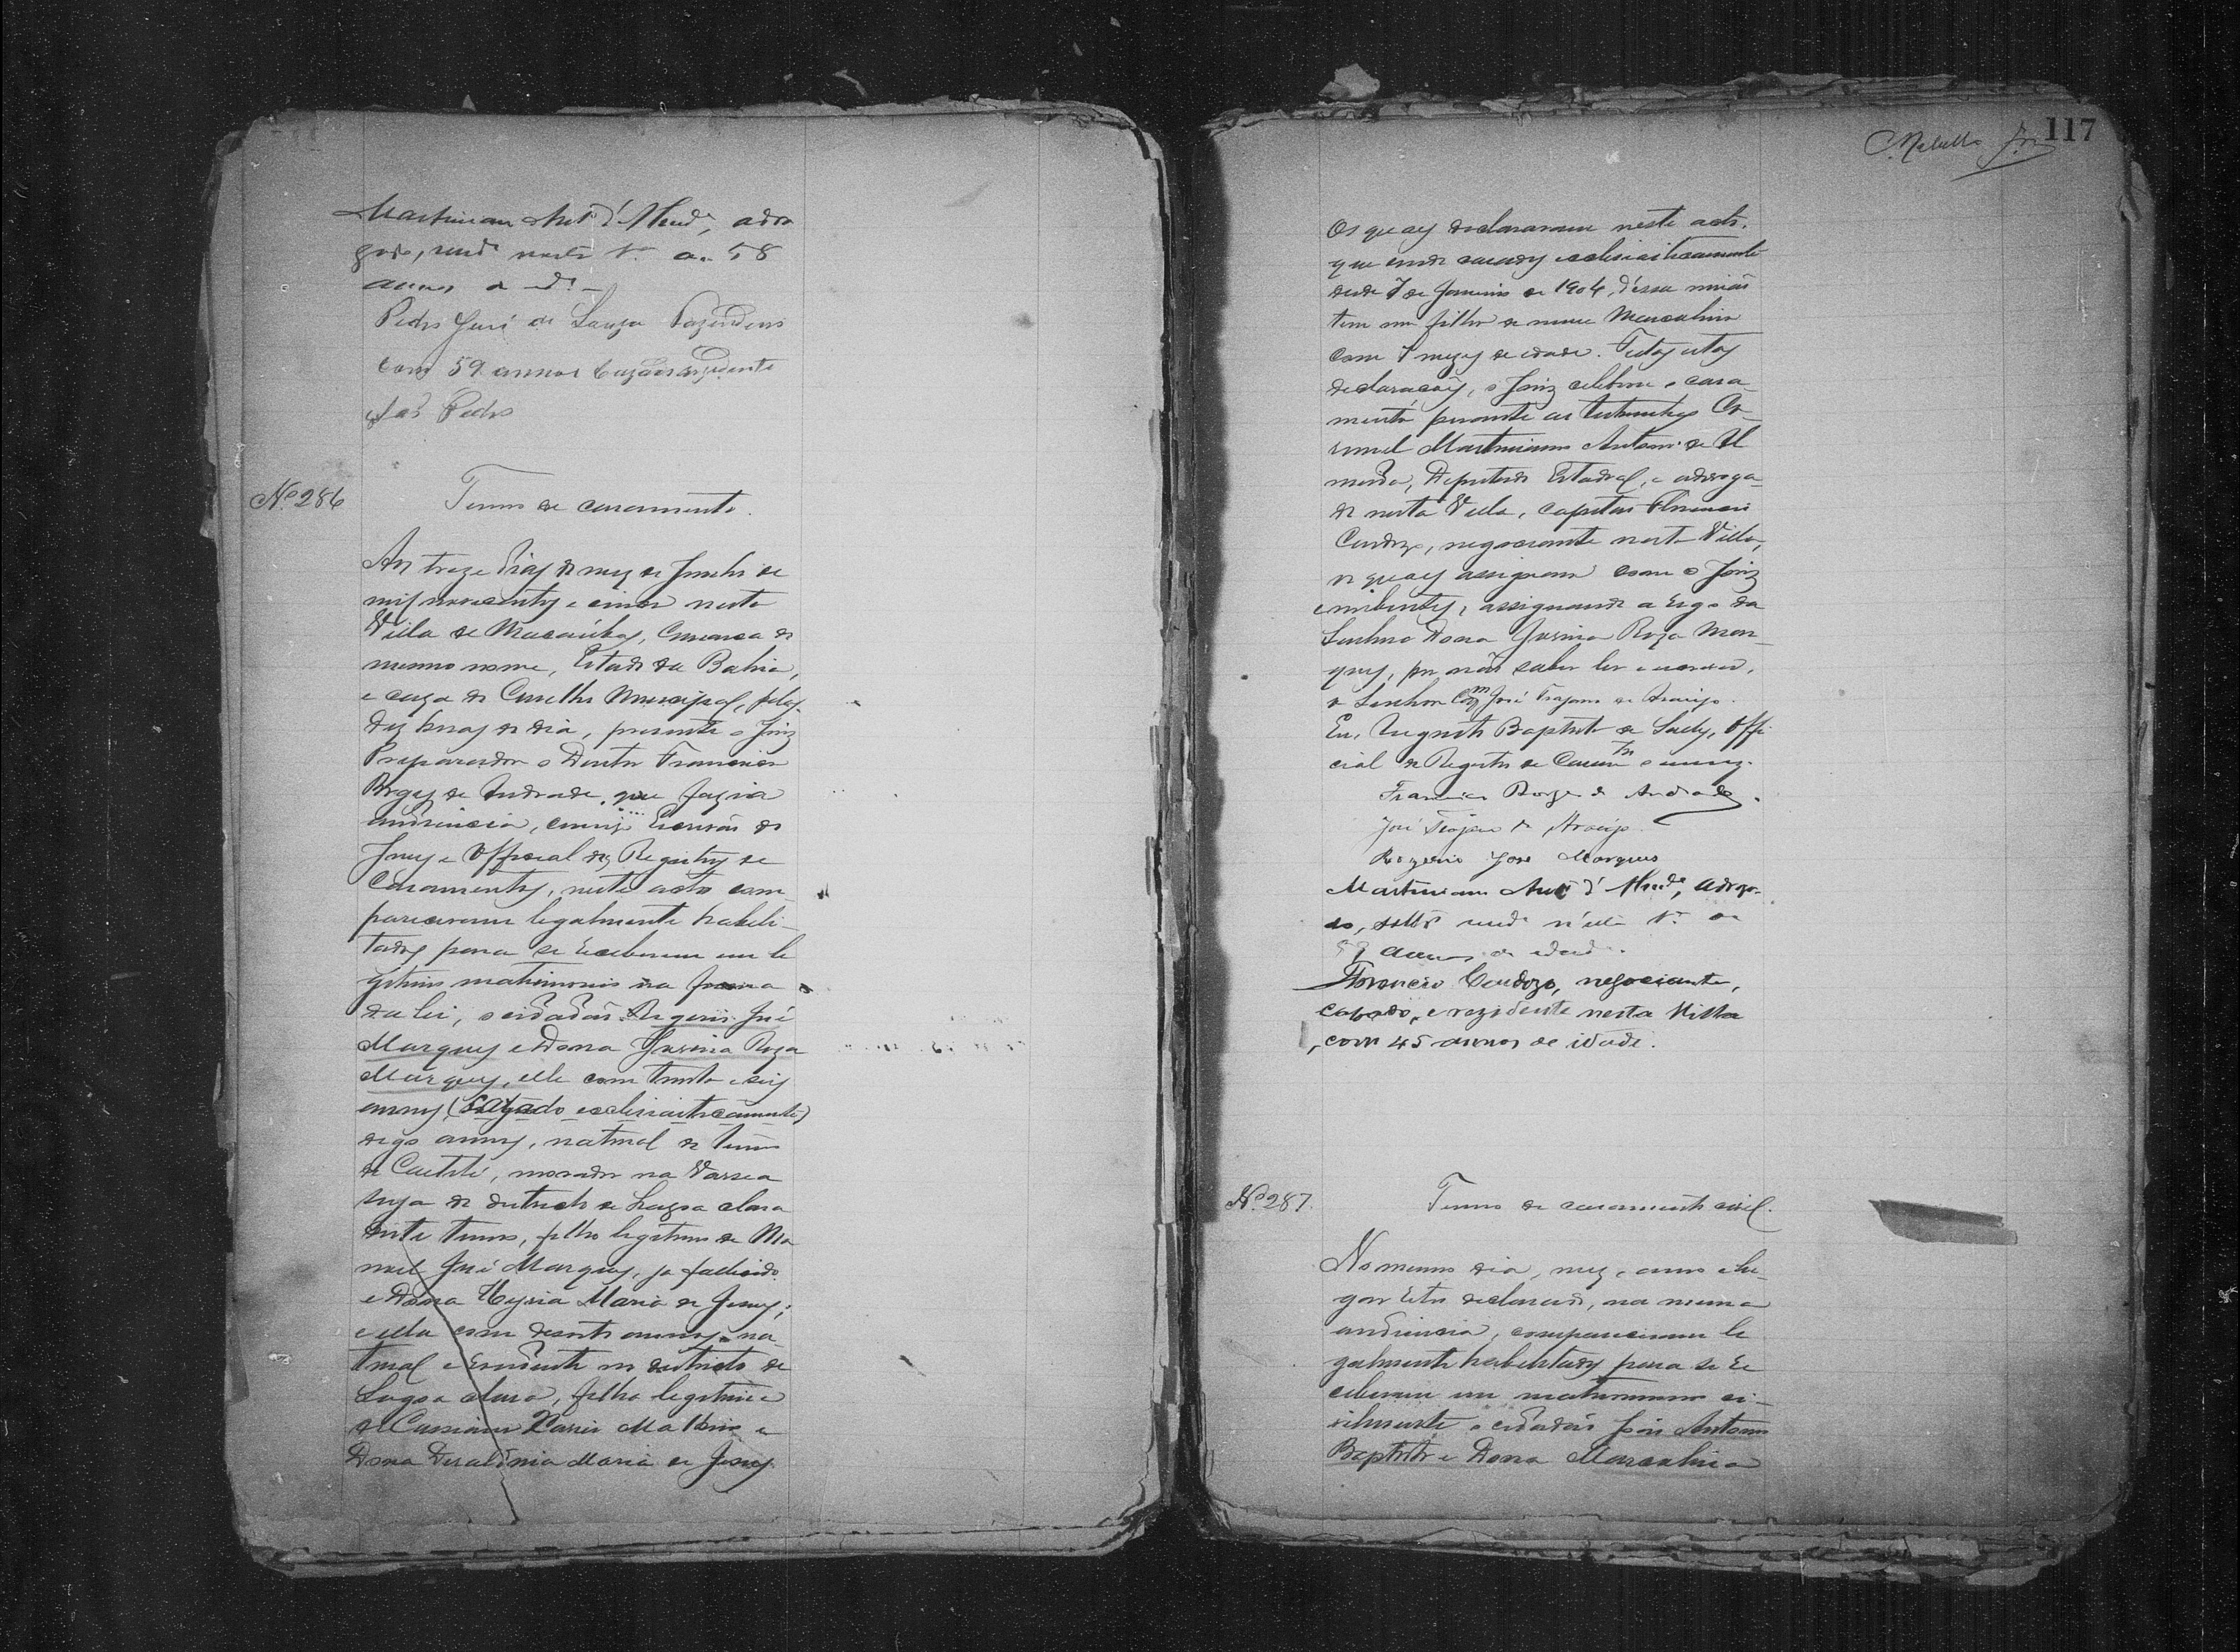 Martiniano Antº d'Almdª, advo
gado, resdº nesta Vª de 58
annos de idº
Pedro José de Souza Fazendeiro
com 59 annos Cazado rezidente
São Pedro
Nº 286
Termo de casamento.
Aos treze dias do mez de Junho de
mil novecentos e cinco nesta
Villa de Macaúbas, Comarca do
mesmo nome, Estado da Bahia,
e caza do Conselho Municipal, pelas
dez horas do dia, presente o Juiz
Preparador o Doutor Francisco
Borges de Andrade, que fazia
audiencia, comigo Escrivão do
Jury e Official dos Registros de
Casamentos, neste acto com
pareceram legalmente habili-
tados para se receberem em le
gitimo matrimonio na forma
da lei, o cidadão Rogerio José
Marques e Dona Jusinia Roza
Marques, elle com trinta e seis
annos (casado ecclesiasticamente)
digo annos, natural do termo
de Caetité, morador na Varsea
suja do districto de Lagoa clara
deste termo, filho legitimo de Ma
noel José Marques, ja fallecido
e Dona Maria de Jesus;
e ella com desoito annos, na
tural e residente no districto de
Lagoa clara, filha legitima
de Cassiano Xavier e
Dona Maria de Jesus
117
Os quaes declararam neste acto,
que sendo casados ecclesiasticamente
desde 7 de Janeiro de 1904, dessa união
tem um filho de nome
com 7 mezes de idade. Feitas estas
declarações, o Juiz celebrou o casa-
mento perante as testemunhas Co-
ronel Martiniano Antonio de Al
meida, Deputado Estadoal, e advoga-
do nesta Villa, capitão Florencio
Cardozo, negociante nesta Villa,
os quaes assignam com o Juiz
e nubentes, assignando a rogo da
Senhora Dona Jusinia Roza Mar-
ques, por não saber ler e escrever,
o Senhor José Trajano de Araujo.
Eu, Augusto Baptista de Offi
cial do Registro de Casamtos o escrevy.
Francisco Borges de Andrade.
José Trajano de Araujo.
Rogerio José Marques
Martiniano Antº d'Almdª, advoga-
do, resdº n'esta Vª de
annos de idade.
Florencio Cardozo, negociante,
casado, e rezidente nesta Villa
, com 45 annos de idade.
Nº 287
Termo de casamento civil.
No mesmo dia, mez, anno e lu-
gar retro declarado, na mesma
audiencia, compareceram le
galmente habilitados para se re
ceberem em matrimonio ci-
vilmente o cidadão José Antonio
Baptista e Dona Marcolina